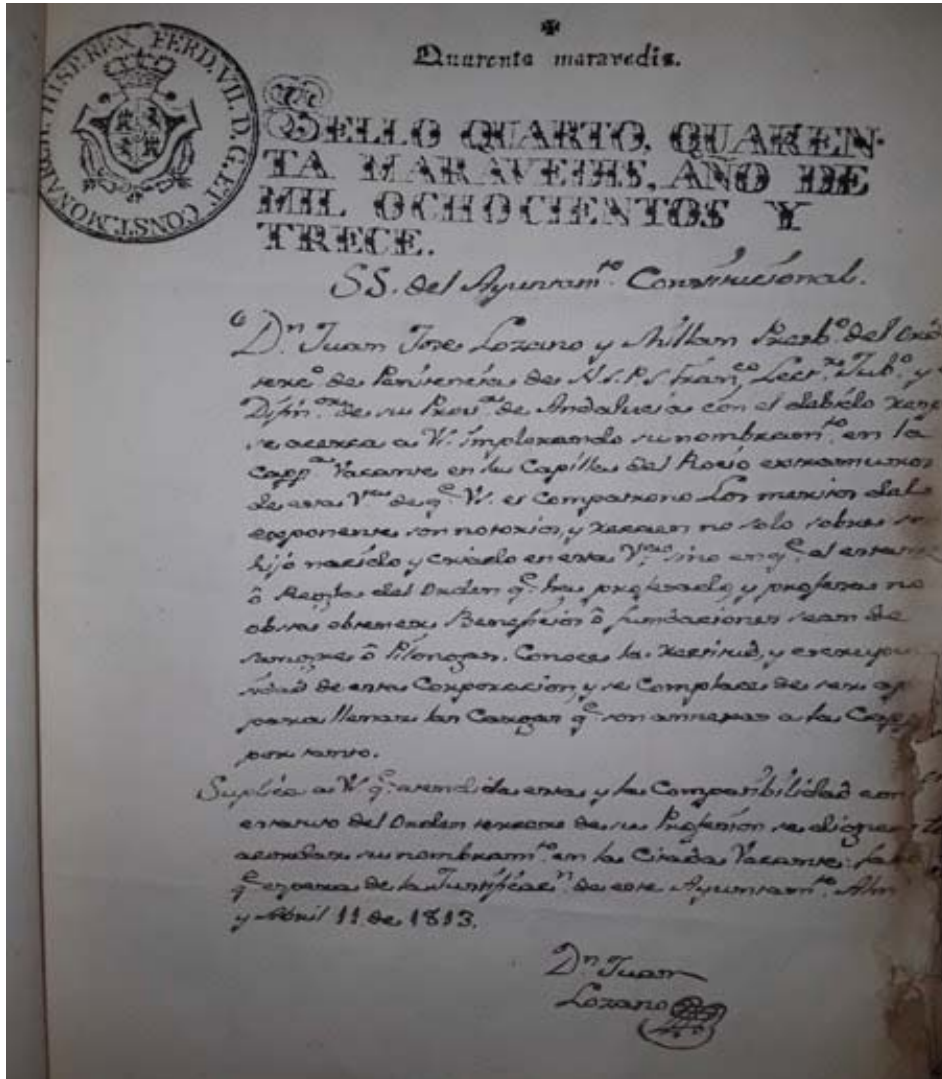 ✠
Quarenta maravedis.
HISP. REX. FERD. VII. D. G. ET CONST. MONARCH.
SELLO QUARTO, QUAREN-
TA MARAVEDIS, AÑO DE
MIL OCHOCIENTOS Y
TRECE.
SS. del Ayuntamto. Constitucional.
Dn. Juan Jose Lozano y Millan Presbo. del
terco. de Penitencia de N.S.P.S. Franco. Lectr. Jubo. y
Difinor. de su Prova. de Andalucia con el debido
se acerca a V. implorando su nombramto. en la
Cappa. Vacante en la Capilla del Rocio extramuros
de esta Va. de qe. V. es Compatrono Los meritos del
exponente son notorios, y recaen no solo sobre
hijo nacido y criado en esta Va. sino en qe. al
ô Regla del Orden qe. ha profesado, y profesa no
obsta obtener Beneficios ô fundaciones sean de
sangre ô Pilongas. Conoce la rectitud, y
de esta Corporacion, y se Complace de ser
para llenar las Cargas qe. son annexas a la
por tanto.
Suplica a V. qe. atendida esta y la Compatibilidad con
estatuto del Orden tercero de su Profesion se
acordar su nombramto. en la Citada Vacante:
qe. espera de la Justificacn. de este Ayuntamto.
y Abril 11 de 1813.
Dn Juan
Lozano